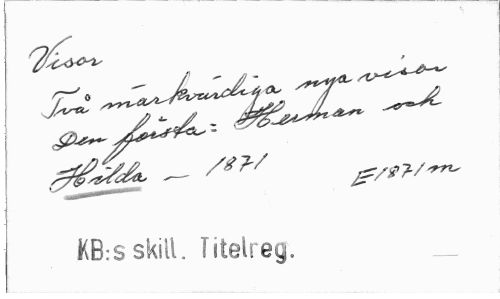 Visor
Två märkvärdiga nya visor
Den första: Herman och
Hilda - 1871
E1871m
KB:s skill. Titelreg.